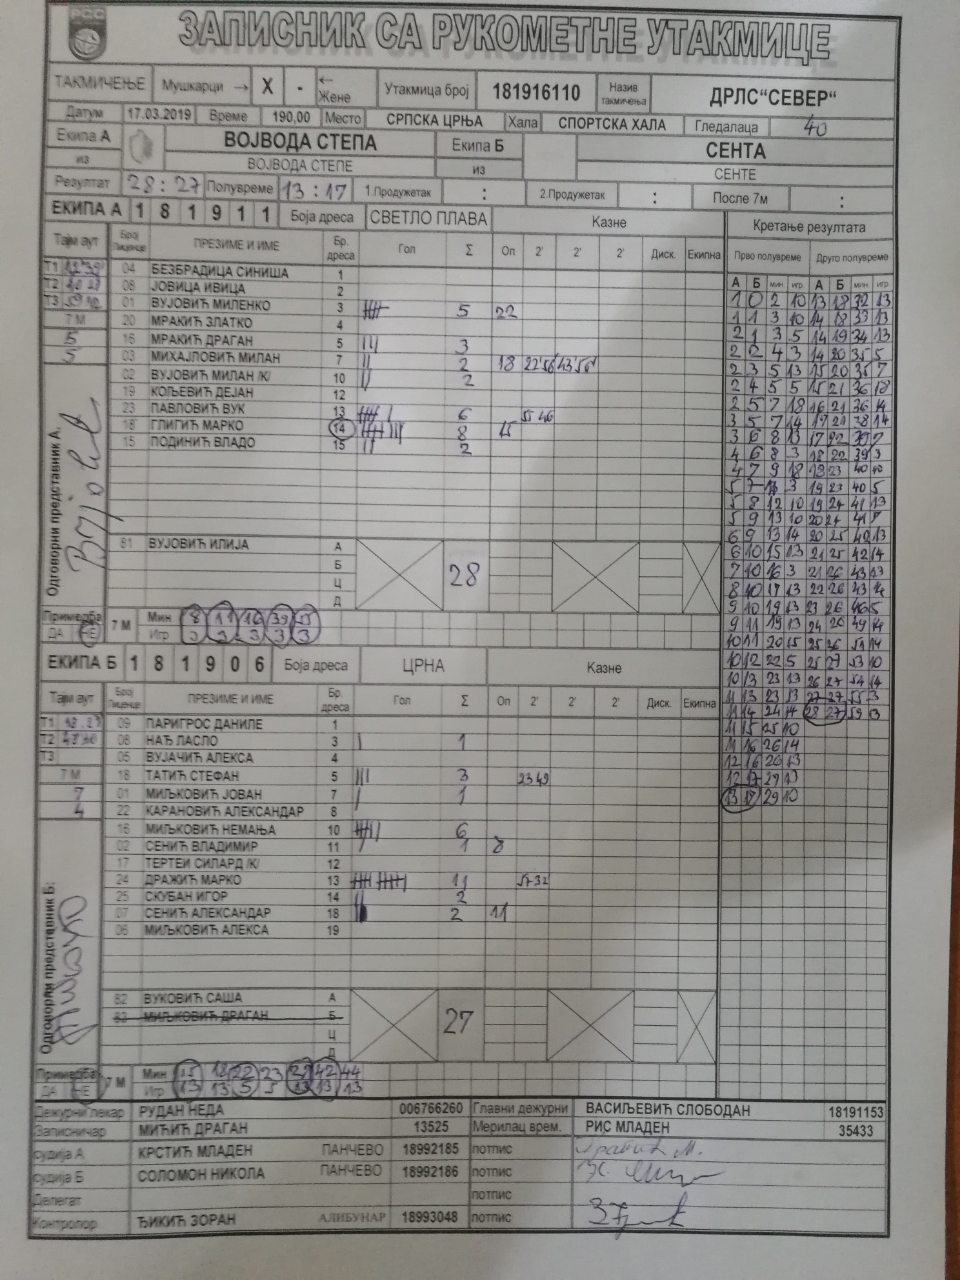 РСС
ЗАПИСНИК СА РУКОМЕТНЕ УТАКМИЦЕ
ТАКМИЧЕЊЕ Мушкарци → X - ← Жене Утакмица број 181916110 Назив такмичења ДРЛС“СЕВЕР“
Датум 17.03.2019 Време 190,00 Место СРПСКА ЦРЊА Хала СПОРТСКА ХАЛА Гледалаца 40
Екипа А ВОЈВОДА СТЕПА Екипа Б СЕНТА
из ВОЈВОДЕ СТЕПЕ из СЕНТЕ
Резултат 28:27 Полувреме 13:17 1.Продужетак : 2.Продужетак : После 7м :
ЕКИПА А 1 8 1 9 1 1 Боја дреса СВЕТЛО ПЛАВА Казне Кретање резултата
Тајм аут Број Лиценце ПРЕЗИМЕ И ИМЕ Бр. дреса Гол Σ Оп 2' 2' 2' Диск. Екипна Прво полувреме Друго полувреме
А Б мин игр А Б мин игр
Т1
Т2
Т3
7 М
5
5
04 БЕЗБРАДИЦА СИНИША 1
08 ЈОВИЦА ИВИЦА 2
01 ВУЈОВИЋ МИЛЕНКО 3 5 22
20 МРАКИЋ ЗЛАТКО 4
16 МРАКИЋ ДРАГАН 5 3
03 МИХАЈЛОВИЋ МИЛАН 7 2 18
02 ВУЈОВИЋ МИЛАН /К/ 10 2
19 КОЉЕВИЋ ДЕЈАН 12
23 ПАВЛОВИЋ ВУК 13 6
18 ГЛИГИЋ МАРКО 14 8 15
15 ПОДИНИЋ ВЛАДО 15 2
Одговорни представник А.
81 ВУЈОВИЋ ИЛИЈА А
Б
Ц 28
Д
Примедба ДА НЕ 7 М Мин 8 11 16 39 55
Игр 3 3 3 3 3
1 0 2 10 13 18 32 13
1 1 3 10 14 18 33 13
2 1 3 5 14 19 34 13
2 2 4 3 14 20 35 5
2 3 5 13 15 20 35 7
2 4 5 5 15 21 36 18
2 5 7 18 16 21 36 14
3 5 7 14 17 21 38 14
3 6 8 13 17 22 39 7
4 6 8 3 18 22 39 3
4 7 9 18
5 7 11 3 19 23 40 5
5 8 12 10 19 24 41 13
5 9 13 10 20 24 41 7
6 9 13 14 20 25 42 13
6 10 15 13 21 25 42 14
7 10 16 3 21 26 43 13
8 10 17 13 22 26 43 14
9 10 19 13 23 26 46 5
9 11 19 13 24 26 49 14
10 11 20 15 25 26 51 14
10 12 22 5 25 27 53 10
10 13 23 13 26 27 54 14
11 13 23 13 27 27 55 3
11 14 24 14 28 27 59 13
11 15 25 10
11 16 26 14
12 16 26 13
12 17 29 13
13 17 29 10
ЕКИПА Б 1 8 1 9 0 6 Боја дреса ЦРНА Казне
Тајм аут Број Лиценце ПРЕЗИМЕ И ИМЕ Бр. дреса Гол Σ Оп 2' 2' 2' Диск. Екипна
Т1
Т2
Т3
7 М
7
4
09 ПАРИГРОС ДАНИЛЕ 1
08 НАЂ ЛАСЛО 3 1
05 ВУЈАЧИЋ АЛЕКСА 4
18 ТАТИЋ СТЕФАН 5 3 23 49
01 МИЉКОВИЋ ЈОВАН 7 1
22 КАРАНОВИЋ АЛЕКСАНДАР 8
16 МИЉКОВИЋ НЕМАЊА 10 6
02 СЕНИЋ ВЛАДИМИР 11 1 8
17 ТЕРТЕИ СИЛАРД /К/ 12
24 ДРАЖИЋ МАРКО 13 11
25 СКУБАН ИГОР 14 2
07 СЕНИЋ АЛЕКСАНДАР 18 2 11
06 МИЉКОВИЋ АЛЕКСА 19
Одговорни представник Б.
82 ВУКОВИЋ САША А
83 МИЉКОВИЋ ДРАГАН Б
Ц 27
Д
Примедба ДА НЕ 7 М Мин 15 18 22 23 29 42 44
Игр 13 13 5 5 13 13 13
Дежурни лекар РУДАН НЕДА 006766260 Главни дежурни ВАСИЉЕВИЋ СЛОБОДАН 18191153
Записничар МИЋИЋ ДРАГАН 13525 Мерилац врем. РИС МЛАДЕН 35433
судија А КРСТИЋ МЛАДЕН ПАНЧЕВО 18992185 потпис
судија Б СОЛОМОН НИКОЛА ПАНЧЕВО 18992186 потпис
Делегат потпис
Контролор ЂИКИЋ ЗОРАН АЛИБУНАР 18993048 потпис